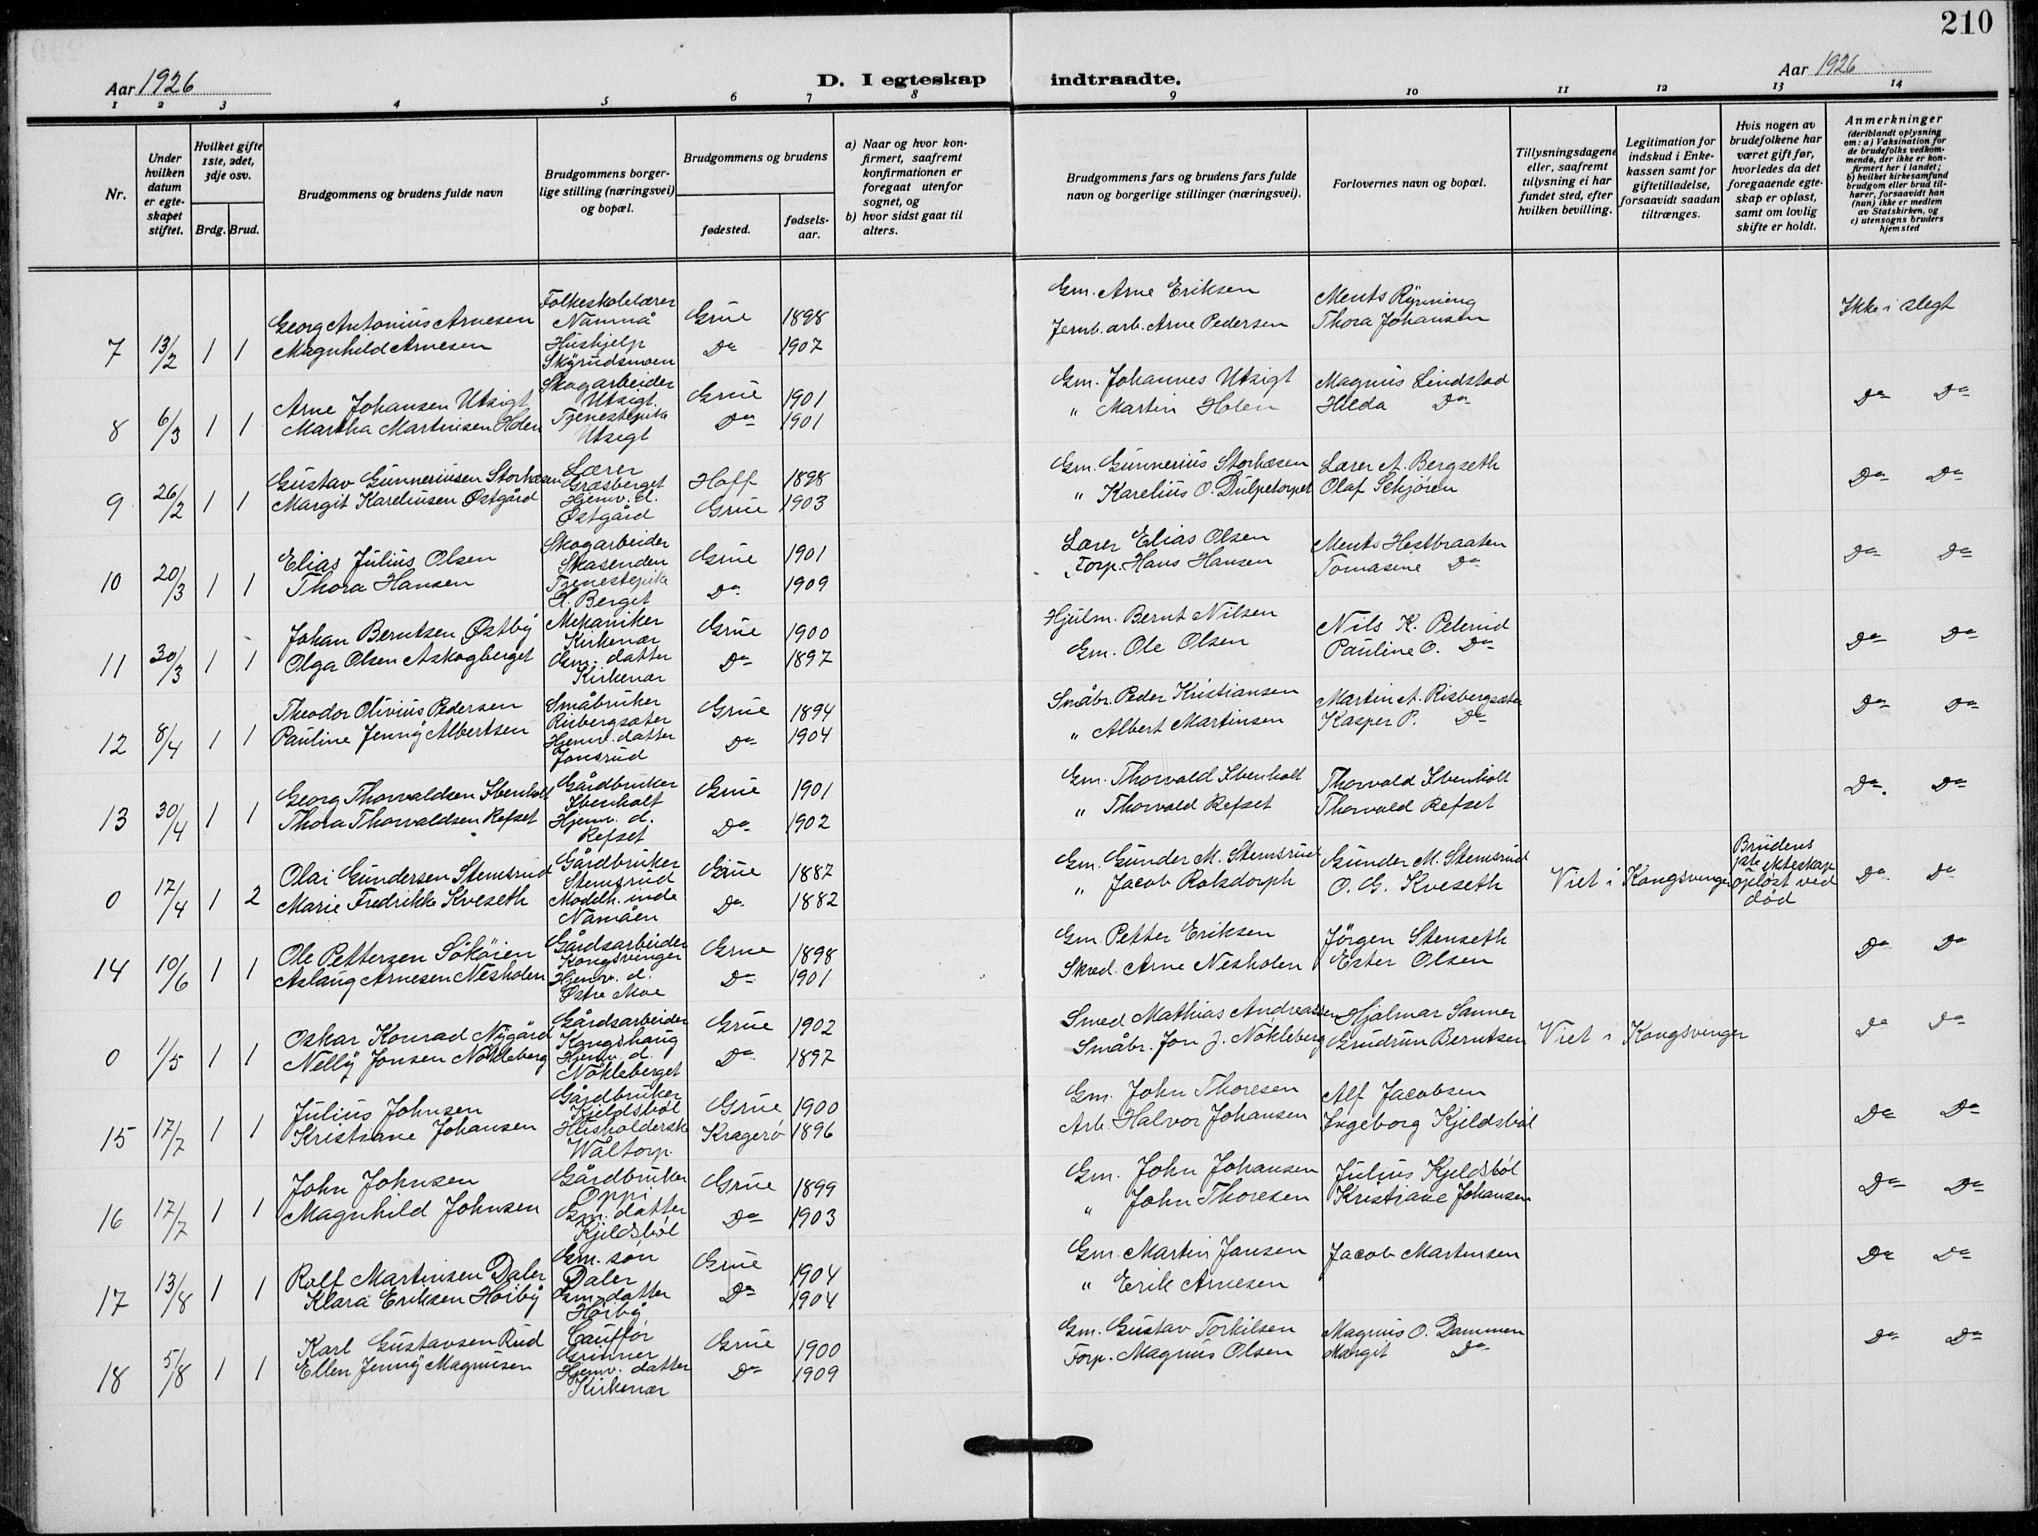 210
Aar 1926
D. I egteskap indtraadte.
Aar 1926
1 2 3 4 5 6 7 8 9 10 11 12 13 14
Nr.
Under hvilken datum er egteskapet stiftet.
Hvilket gifte 1ste, 2det, 3dje osv.
Brdg. Brud.
Brudgommens og brudens fulde navn
Brudgommens borgerlige stilling (næringsvei) og bopæl.
Brudgommens og brudens
fødested.
fødselsaar.
a) Naar og hvor konfirmert, saafremt konfirmationen er foregaat utenfor sognet, og
b) hvor sidst gaat til alters.
Brudgommens fars og brudens fars fulde navn og borgerlige stillinger (næringsvei).
Forlovernes navn og bopæl.
Tillysningsdagene eller, saafremt tillysning ei har fundet sted, efter hvilken bevilling.
Legitimation for indskud i Enkekassen samt for giftetilladelse, forsaavidt saadan tiltrænges.
Hvis nogen av brudefolkene har været gift før, hvorledes da det foregaaende egteskap er opløst, samt om lovlig skifte er holdt.
Anmerkninger
(deriblandt oplysning om: a) Vaksination for de brudefolks vedkommende, der ikke er konfirmert her i landet; b) hvilket kirkesamfund brudgom eller brud tilhører, forsaavidt han (hun) ikke er medlem av Statskirken, og c) utensogns bruders hjemsted
7 13/2 1 1
Georg Antonius Arnesen
Magnhild Arnesen
Folkeskolelærer
Namnå
Hushjelp
Skyrudsmoen
Grue 1898
Do 1907
Gm. Arne Eriksen
Jernb. arb. Arne Pedersen
Ments Rynning
Thora Johansen
Ikke i slegt
8 6/3 1 1
Arne Johansen Utsigt
Martha Martinsen Holen
Skogarbeider
Utsigt.
Tjenestepike
Utsigt
Grue 1901
Do 1901
Gm. Johannes Utsigt
" Martin Holen
Magnus Lindstad
Hilda Do
Do Do
9 26/2 1 1
Gustav Gunneriusen Storhæsen
Margit Kareliusen Østgård
Lærer
Græsberget
Hjemv. d.
Østgård
Hoff 1898
Grue 1903
Gm. Gunnerius Storhæsen
" Karelius O. Dulpetorpet
Lærer A. Bergseth
Olaf Schjøren
Do Do
10 20/3 1 1
Elias Julius Olsen
Thora Hansen
Skogarbeider
Skasenden
Tjenestepike
H. Berget
Grue 1901
Do 1909
Lærer Elias Olsen
Forp. Hans Hansen
Ments Hestbraaten
Tomasine Do
Do Do
11 30/3 1 1
Johan Berntsen Østby
Olga Olsen Askogberget
Mekaniker
Kirkenær
Gm. datter
Kirkenær
Grue 1900
Do 1897
Hjulm. Bernt Nilsen
Gm. Ole Olsen
Nils K. Pelerud
Pauline O. Do
Do Do
12 8/4 1 1
Theodor Olivius Pedersen
Pauline Jenny Albertsen
Småbruker
Risbergsæter
Hjemv. datter
Jonsrud
Grue 1894
Do 1904
Småbr. Peder Kristiansen
" Albert Martinsen
Martin A. Risbergsæter
Kasper P. Do
Do Do
13 30/4 1 1
Georg Thorvaldsen Ibenholt
Thora Thorvaldsen Refset
Gårdbruker
Ibenholt
Hjemv. d.
Refset
Grue 1901
Do 1902
Gm. Thorvald Ibenholt
" Thorvald Refset
Thorvald Ibenholt
Thorvald Refset
Do. Do
0 17/4 1 2
Olai Gundersen Stemsrud
Marie Fredrikke Kveseth
Gårdbruker
Stemsrud
Modelh. inde
Namåen
Grue 1887
Do 1882
Gm. Gunder M. Stemsrud
" Jacob Rolsdorph
Gunder M. Stemsrud
O. G. Kveseth
Viet i Kongsvinger
Brudens
1ste ekteskap
opløst ved
død
Do Do
14 10/6 1 1
Ole Petterzen Sökòien
Aslaug Arnesen Nesholen
Gårdsarbeider
Kongsvinger
Hjemv. d.
Østre Moe
Grue 1898
Do 1901
Gm Petter Eriksen
Skred. Arne Nesholen
Jörgen Stenseth
Ester Olsen
Do Do
0 1/5 1 1
Oskar Konrad Nygård
Nelly Jonsen Nökleberg
Gårdsarbeider
Kongshaug
Hjemv. d.
Nökleberget
Grue 1902
Do 1897
Smed Mathias Andreassen
Småbr. Jon J. Nökleberg
Hjalmar Sanner
Gudrun Berntsen
Viet i Kongsvinger
Do Do
15 17/7 1 1
Julius Johnsen
Kristiane Johansen
Gårdbruker
Kjeldsböl
Husholderske
Wåltorp.
Grue 1900
Kragerö 1896
Gm. John Thoresen
Arb. Halvor Johansen
Alf Jacobsen
Ingeborg Kjeldsböl
Do Do
16 17/7 1 1
John Johnsen
Magnhild Johnsen
Gårdbruker
Oppi
Gm. datter
Kjeldsböl
Grue 1899
Do 1903
Gm. John Johansen
" John Thoresen
Julius Kjeldsböl
Kristiane Johansen
Do Do
17 13/8 1 1
Rolf Martinsen Daler
Klara Eriksen Höiby
Gm. sön
Daler
Gm. datter
Höiby
Grue 1904
Do 1904
Gm. Martin Jansen
" Erik Arnesen
Jacob Martinsen
Do Do
18 5/8 1 1
Karl Gustavsen Rud
Ellen Jenny Magnusen
Caufför
Grinner
Hjemv. datter
Kirkenær
Grue 1900
Do 1909
Gm. Gustav Torkilsen
Forp. Magnus Olsen
Magnus O. Dammen
Margit Do
Do Do